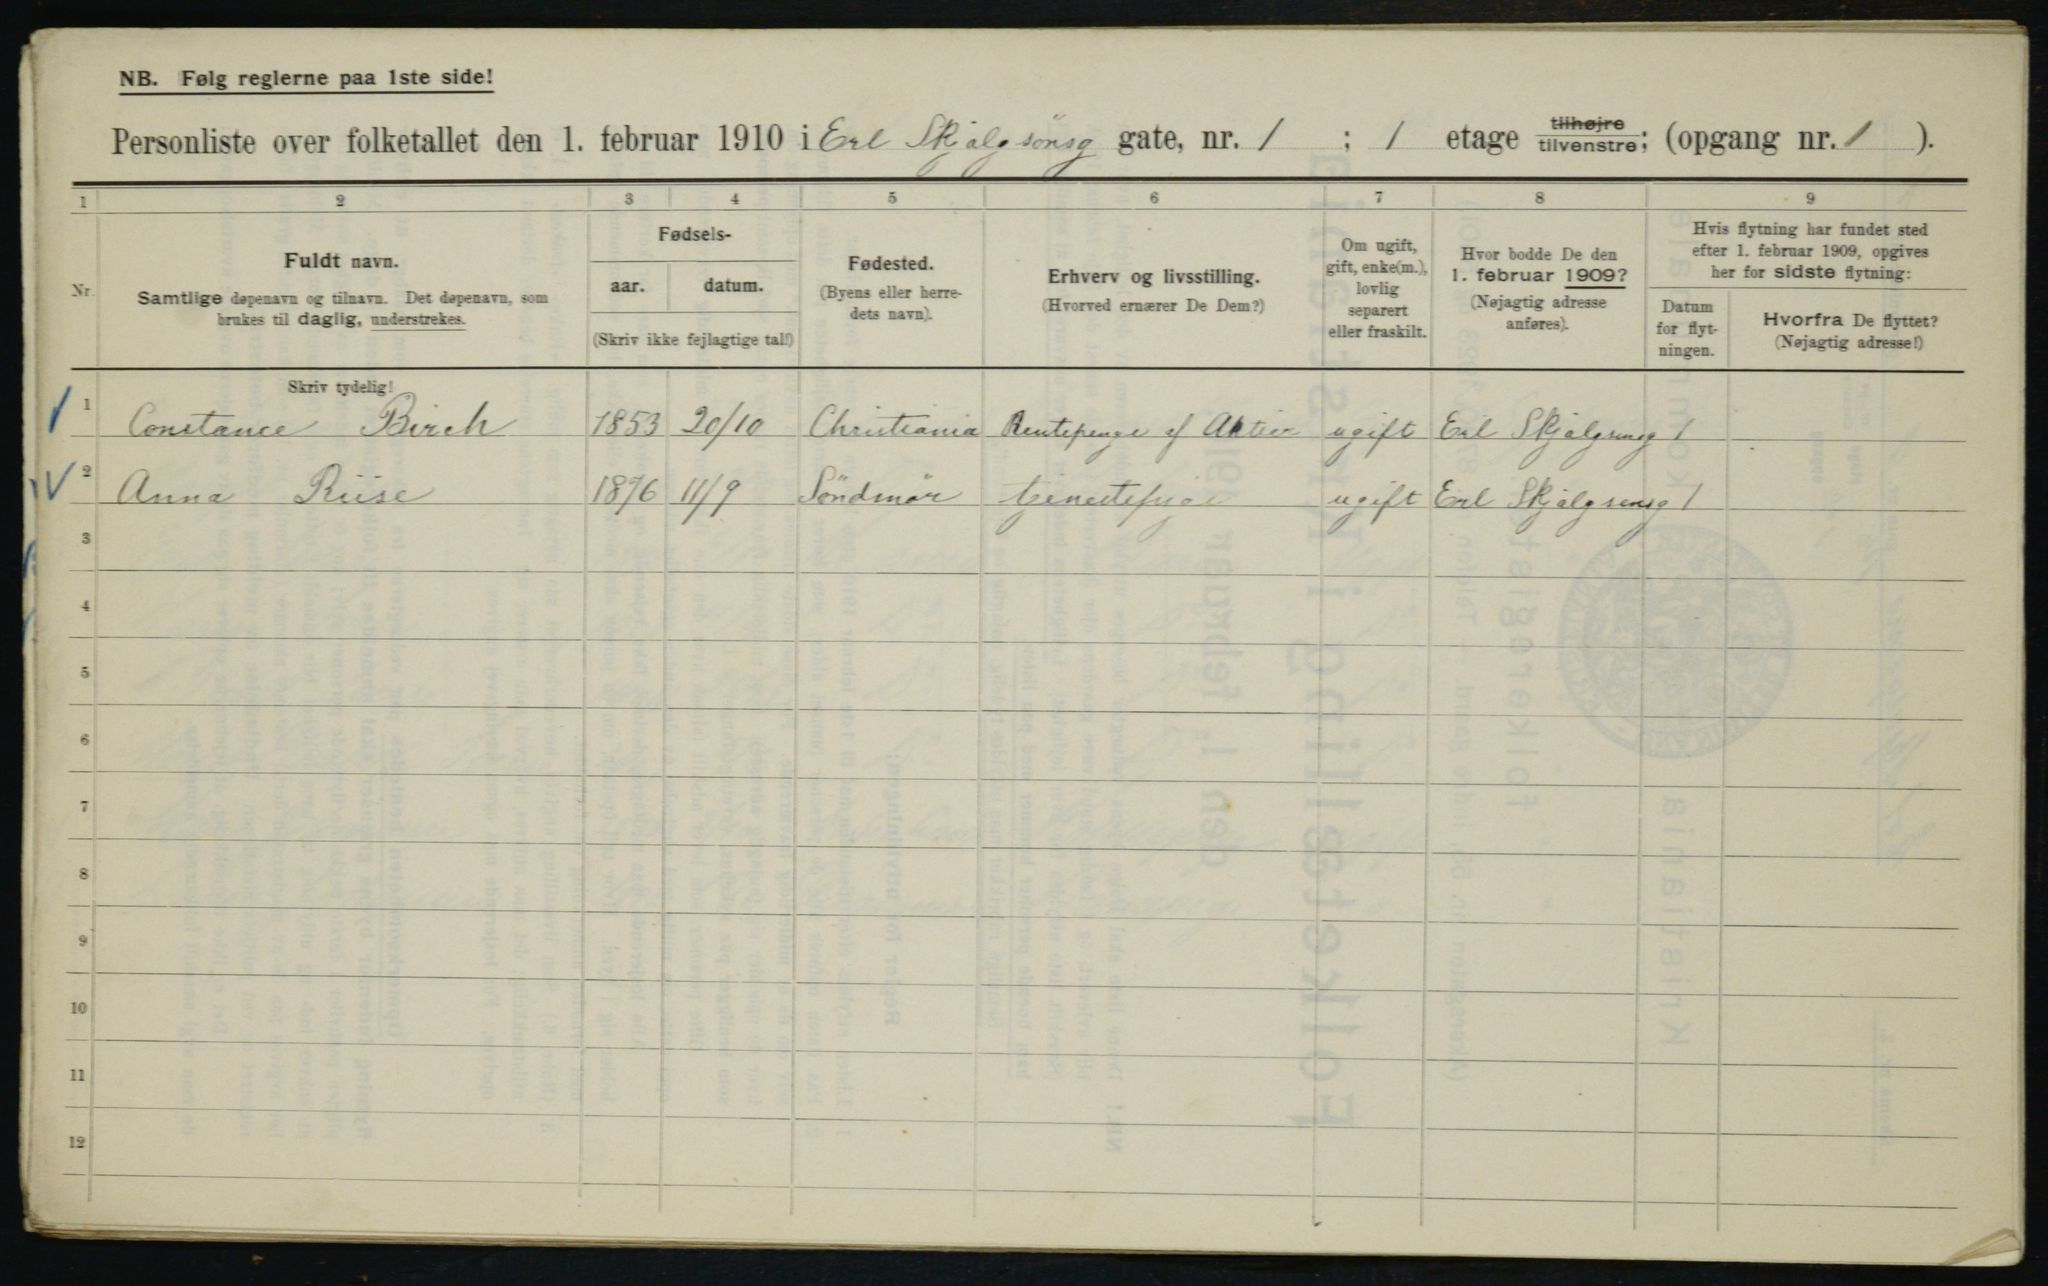 NB. Følg reglerne paa 1ste side!
Personliste over folketallet den 1. februar 1910 i Erl Skjalgsönsg gate, nr. 1 ; 1 etage tilhøjre tilvenstre; (opgang nr. 1 ).
1 2 3 4 5 6 7 8 9
Nr.
Fuldt navn.
Samtlige døpenavn og tilnavn. Det døpenavn, som
brukes til daglig, understrekes.
Fødsels-
aar. datum.
(Skriv ikke fejlagtige tal!)
Fødested.
(Byens eller herre-
dets navn).
Erhverv og livsstilling.
(Hvorved ernærer De Dem?)
Om ugift,
gift, enke(m.),
lovlig
separert
eller fraskilt.
Hvor bodde De den
1. februar 1909?
(Nøjagtig adresse
anføres).
Hvis flytning har fundet sted
efter 1. februar 1909, opgives
her for sidste flytning:
Datum
for flyt-
ningen.
Hvorfra De flyttet?
(Nøjagtig adresse!)
Skriv tydelig!
1 Constance Birch 1853 20/10 Christiania Rentepenge af Aktier ugift Erl Skjalgsensg 1
2 Anna Riise 1876 11/9 Söndmör tjenestepige ugift Erl Skjalgsensg 1
3
4
5
6
7
8
9
10
11
12